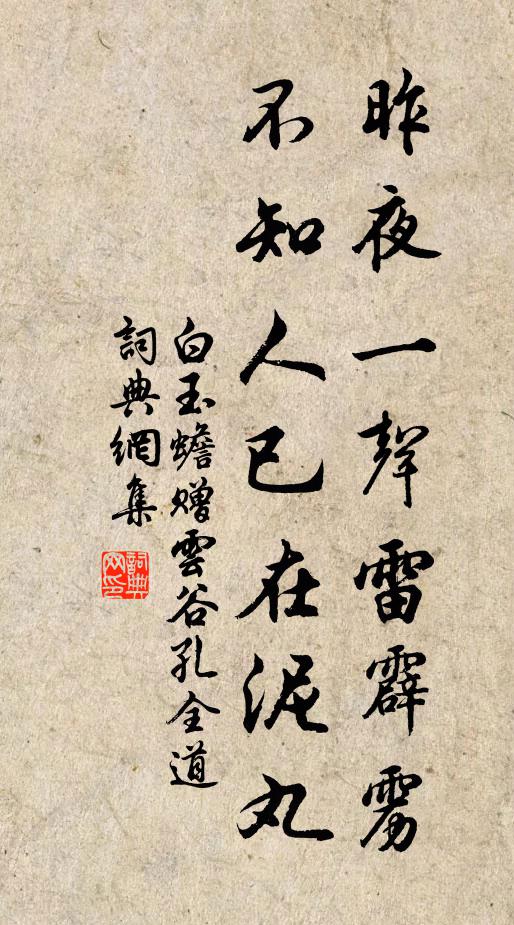 昨夜一聲雷霹雳
不知人已在泥丸
白玉蟾赠雲谷孔全道
詞典網集
詞典网印